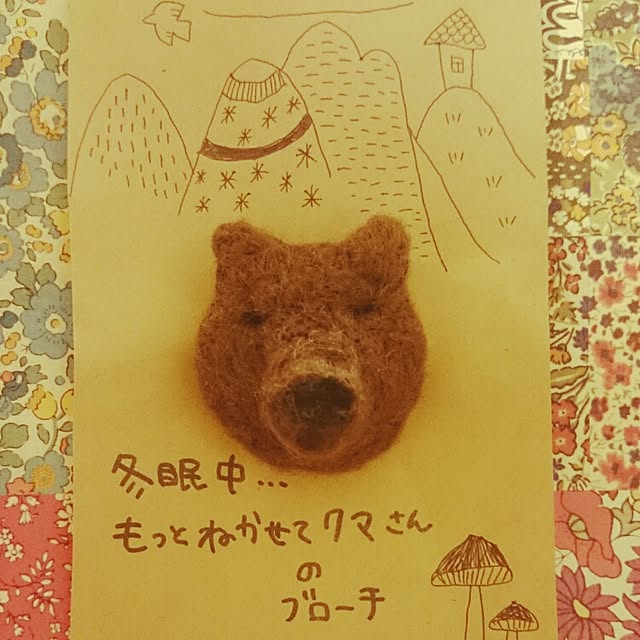 冬眠中...
もっとねかせてクマさん
の
ブローチ